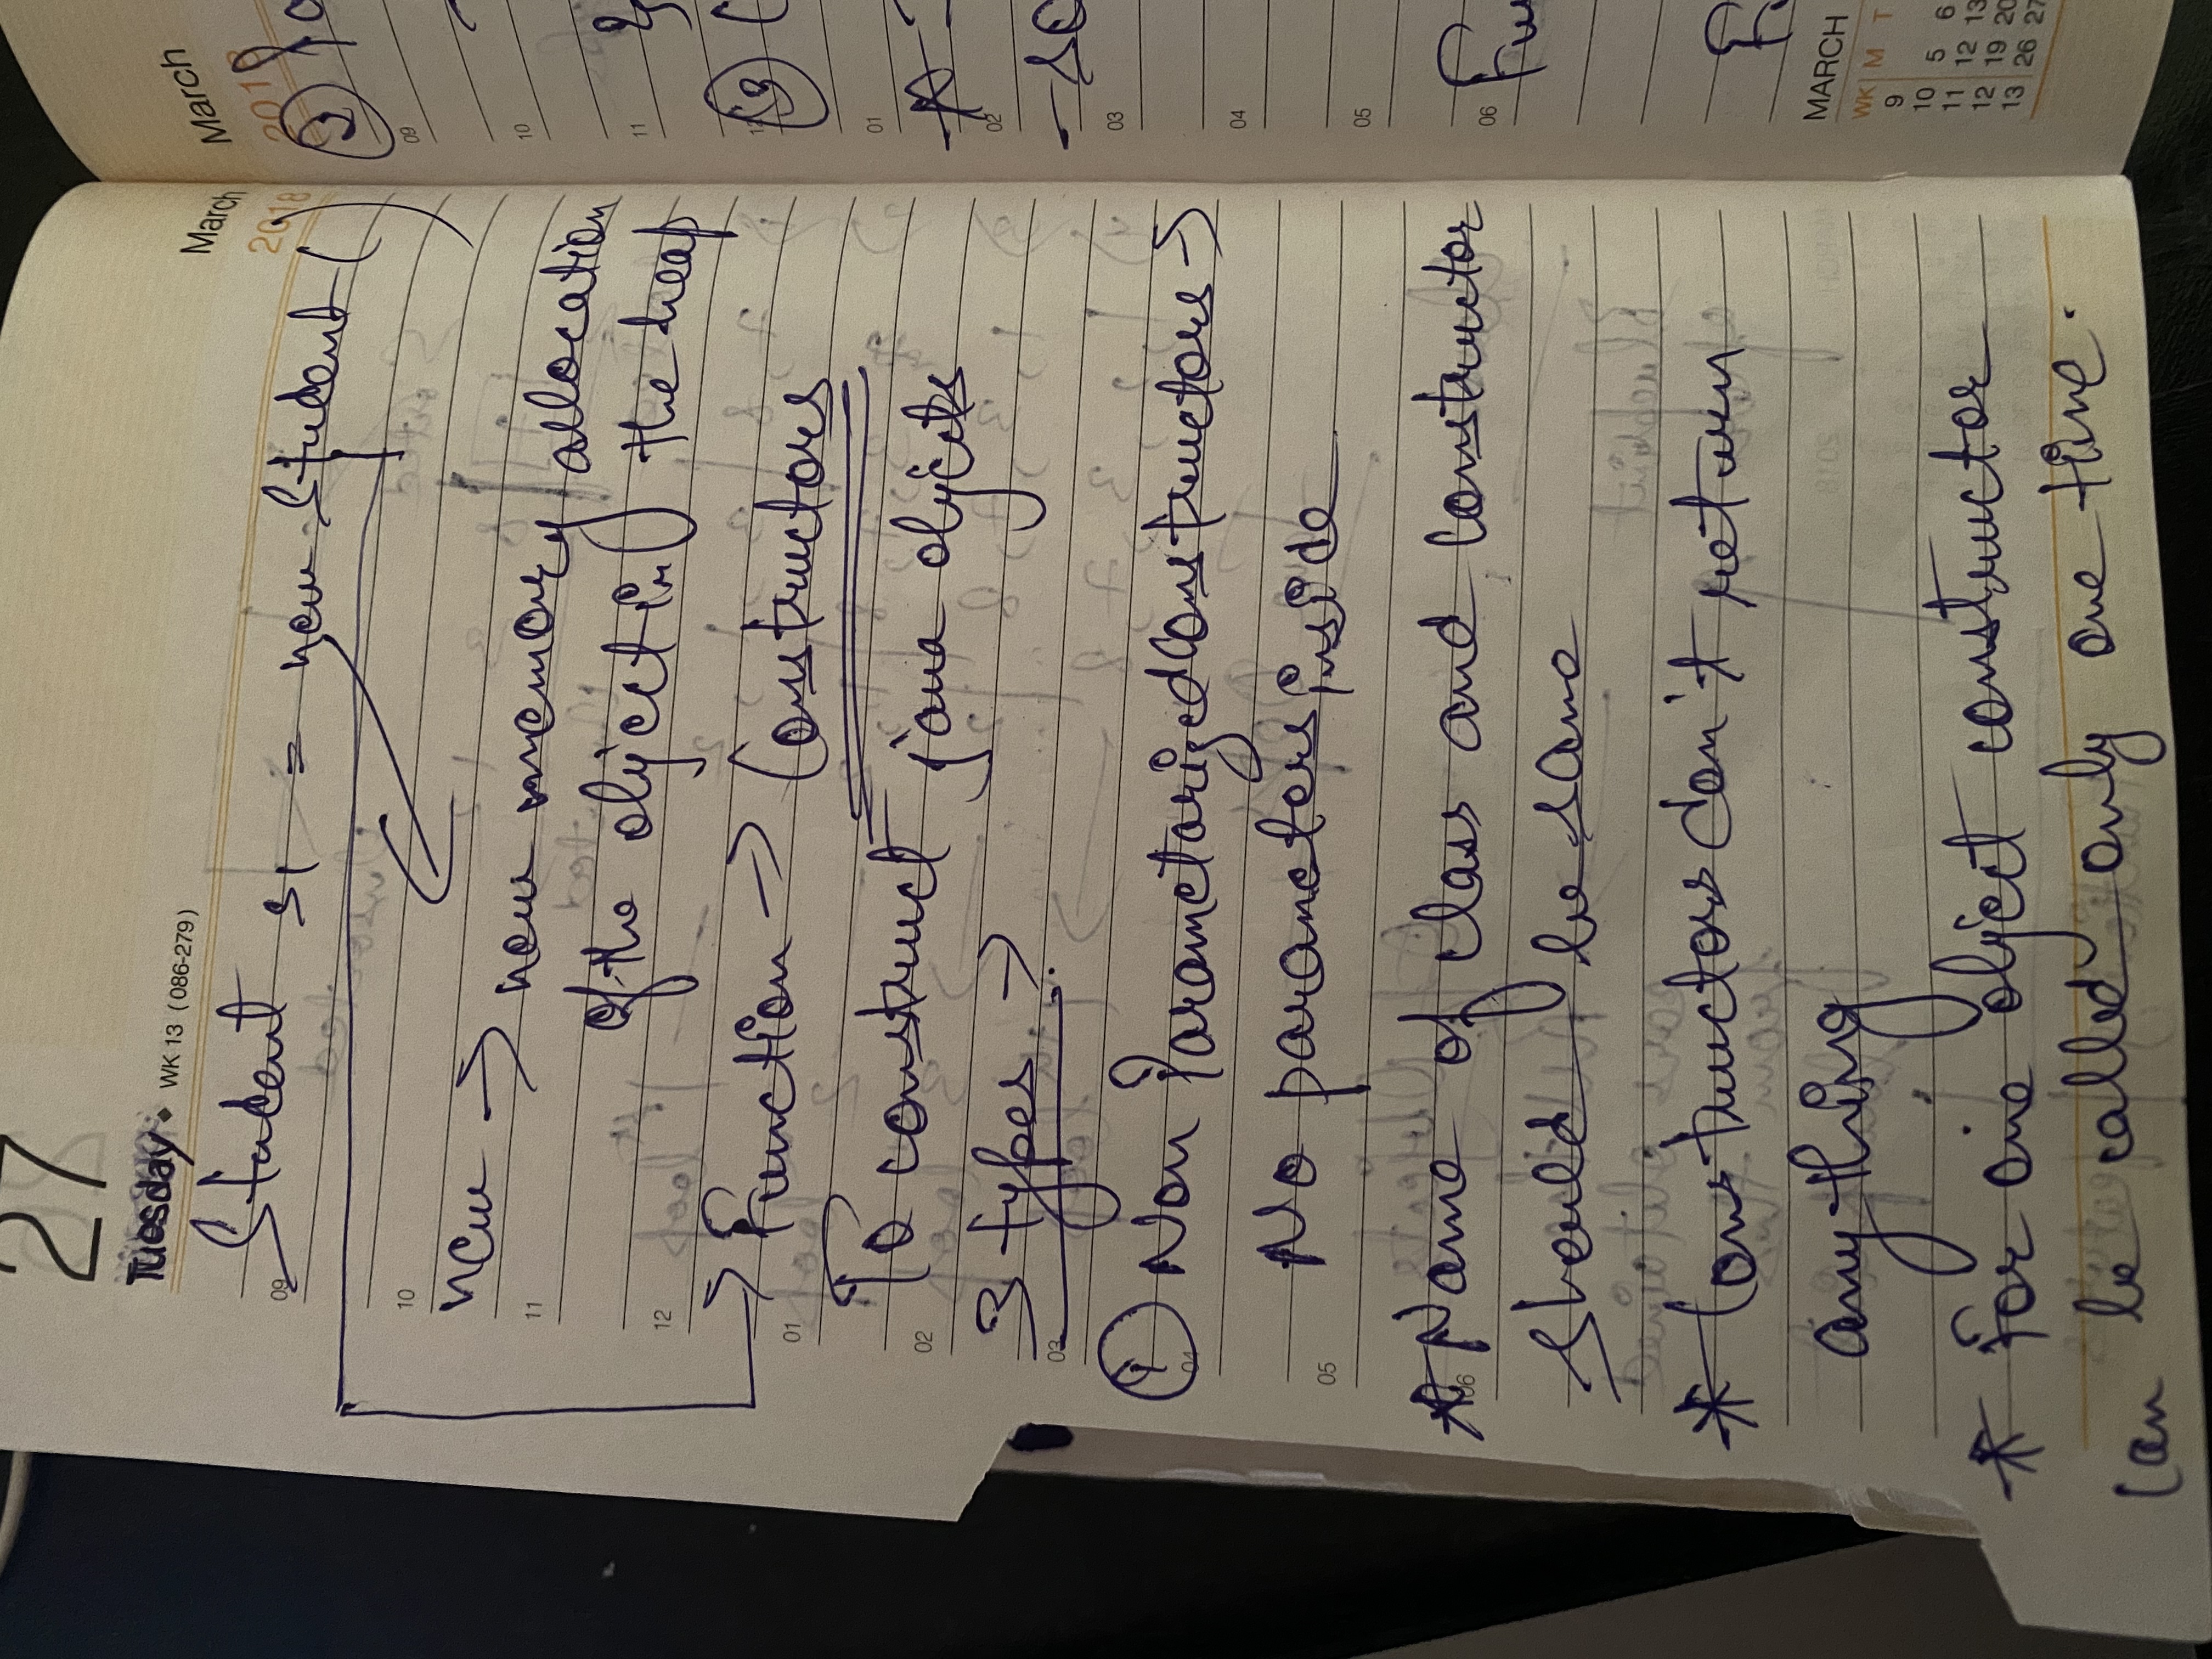 27
Tuesday ◆ WK 13 (086-279)
March
2018
Student s1 = new Student ( )
new → new memory allocation
of the object in the heap
Function → Constructors
To construct java objects
3 types →
① Non Parametarized Constructors →
No parameters inside
* Name of class and constructor
should be same
* Constructors don't return
anything
* For one object constructor
can be called only one time.
09
10
11
12
01
02
03
04
05
06
March
2018
②
09
10
11
③
01
02
03
04
05
06
MARCH
WK M T
9
10 5 6
11 12 13
12 19 20
13 26 27